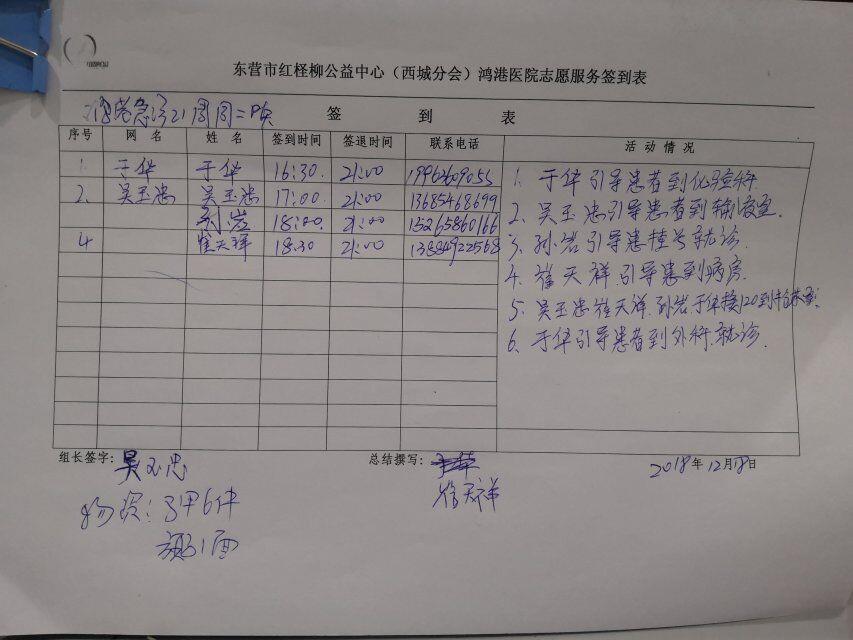 东营市红柽柳公益中心（西城分会）鸿港医院志愿服务签到表
签 到 表
序号 网 名 姓 名 签到时间 签退时间 联系电话 活 动 情 况
1. 于华 于华 16:30. 21:00 19962609055
2. 吴玉忠 吴玉忠 17:00. 21:00 13685468699
孙岩 18:00. 21:00 15265860166
4 崔天祥 18.30 21:00 13884922568
1. 于华引导患者到化验科.
2. 吴玉忠引导患者到输液室.
3. 孙岩引导患挂号就诊.
4. 崔天祥.引导患到病房.
5. 吴玉忠崔天祥.孙岩.于华接120到
6. 于华引导患者到外科.就诊.
组长签字: 吴玉忠 总结撰写: 2018年12月18日
崔天祥
物资:马甲6件
旗1面